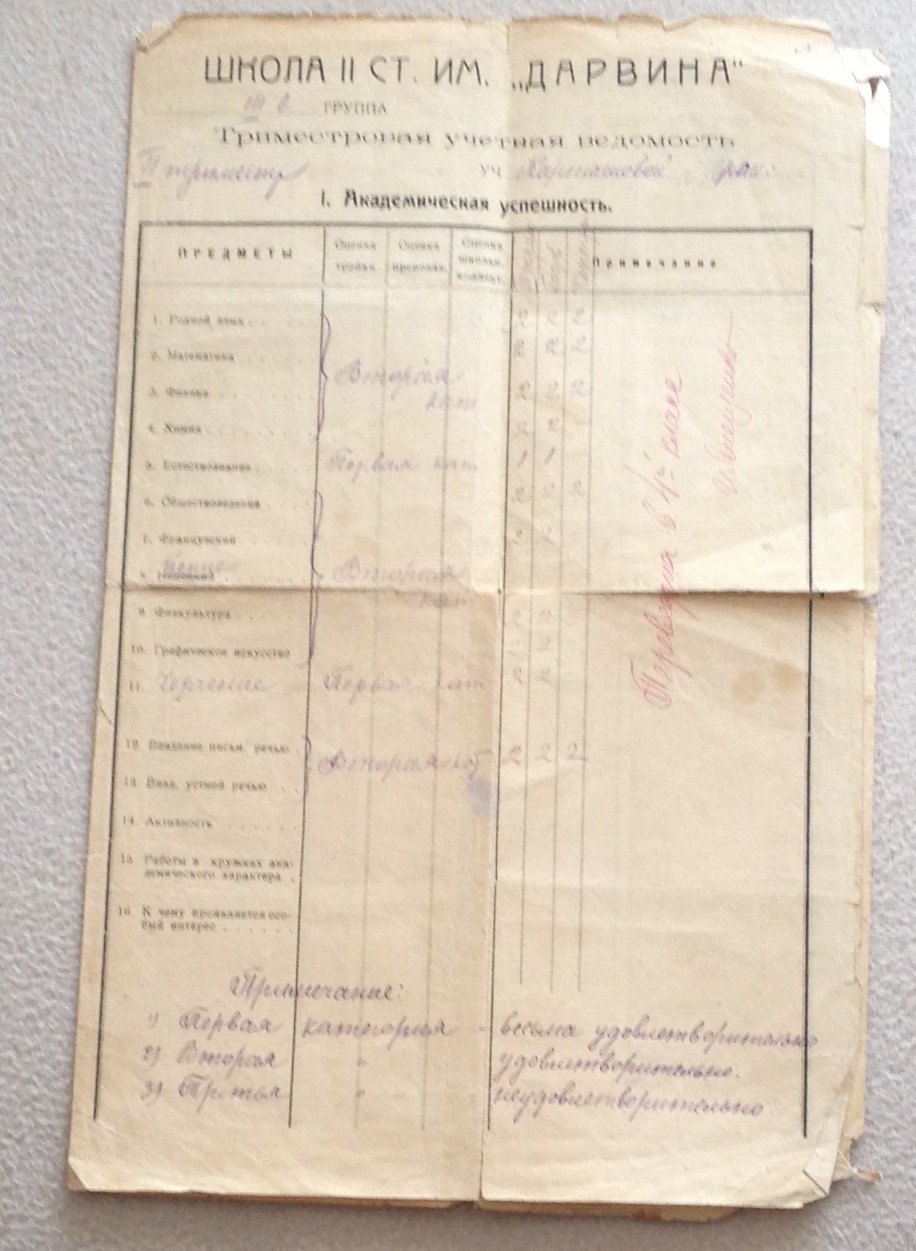 ШКОЛА II СТ. ИМ. „ДАРВИНА"
III в ГРУППА
Триместровая учетная ведомость
II триместр уч
I. Академическая успешность.
ПРЕДМЕТЫ Оценка тройки Оценка преподав. Оценка школьн. коллект. Примечание
1. Родной язык 2 2 2
2. Математика 2 2 2
Вторая
кат
3. Физика 2 2 2
4. Химия 2 2
5. Естествознание Первая кат 1 1
6. Обществоведение 2 2 2
7. Французский
8. Немецкий Пение Вторая
кат
9. Физкультура 2
10. Графическое искусство
11. Черчение Первая кат 2 2
12. Владение письм. речью Вторая кат 2 2 2
13. Влад. устной речью
14. Активность
15. Работы в кружках ака-
демического характера
16. К чему проявляется осо-
бый интерес
Переведена в класс
Примечание:
1) Первая категория - весьма удовлетворительно
2) Вторая " удовлетворительно.
3) Третья " неудовлетворительно.